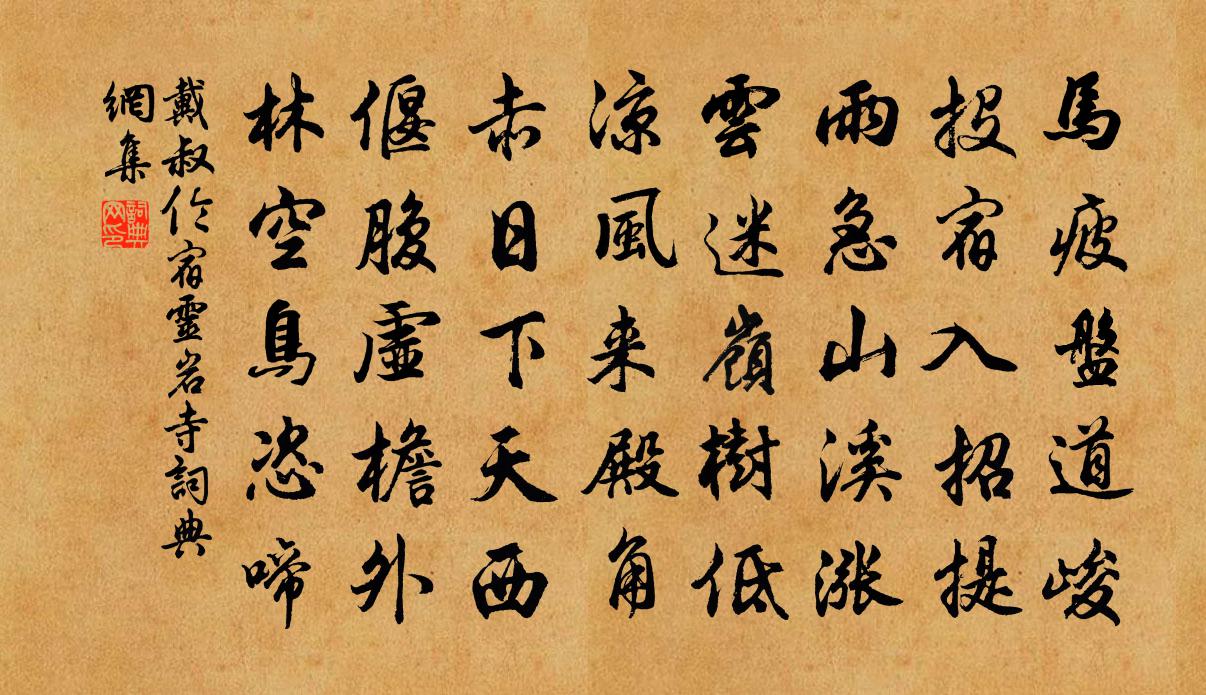 馬疲盤道峻
投宿入招提
雨急山溪漲
雲迷嶺樹低
涼風来殿角
赤日下天西
偃腹虛檐外
林空鳥恣啼
戴叔伦宿靈岩寺詞典
網集
詞典
网印